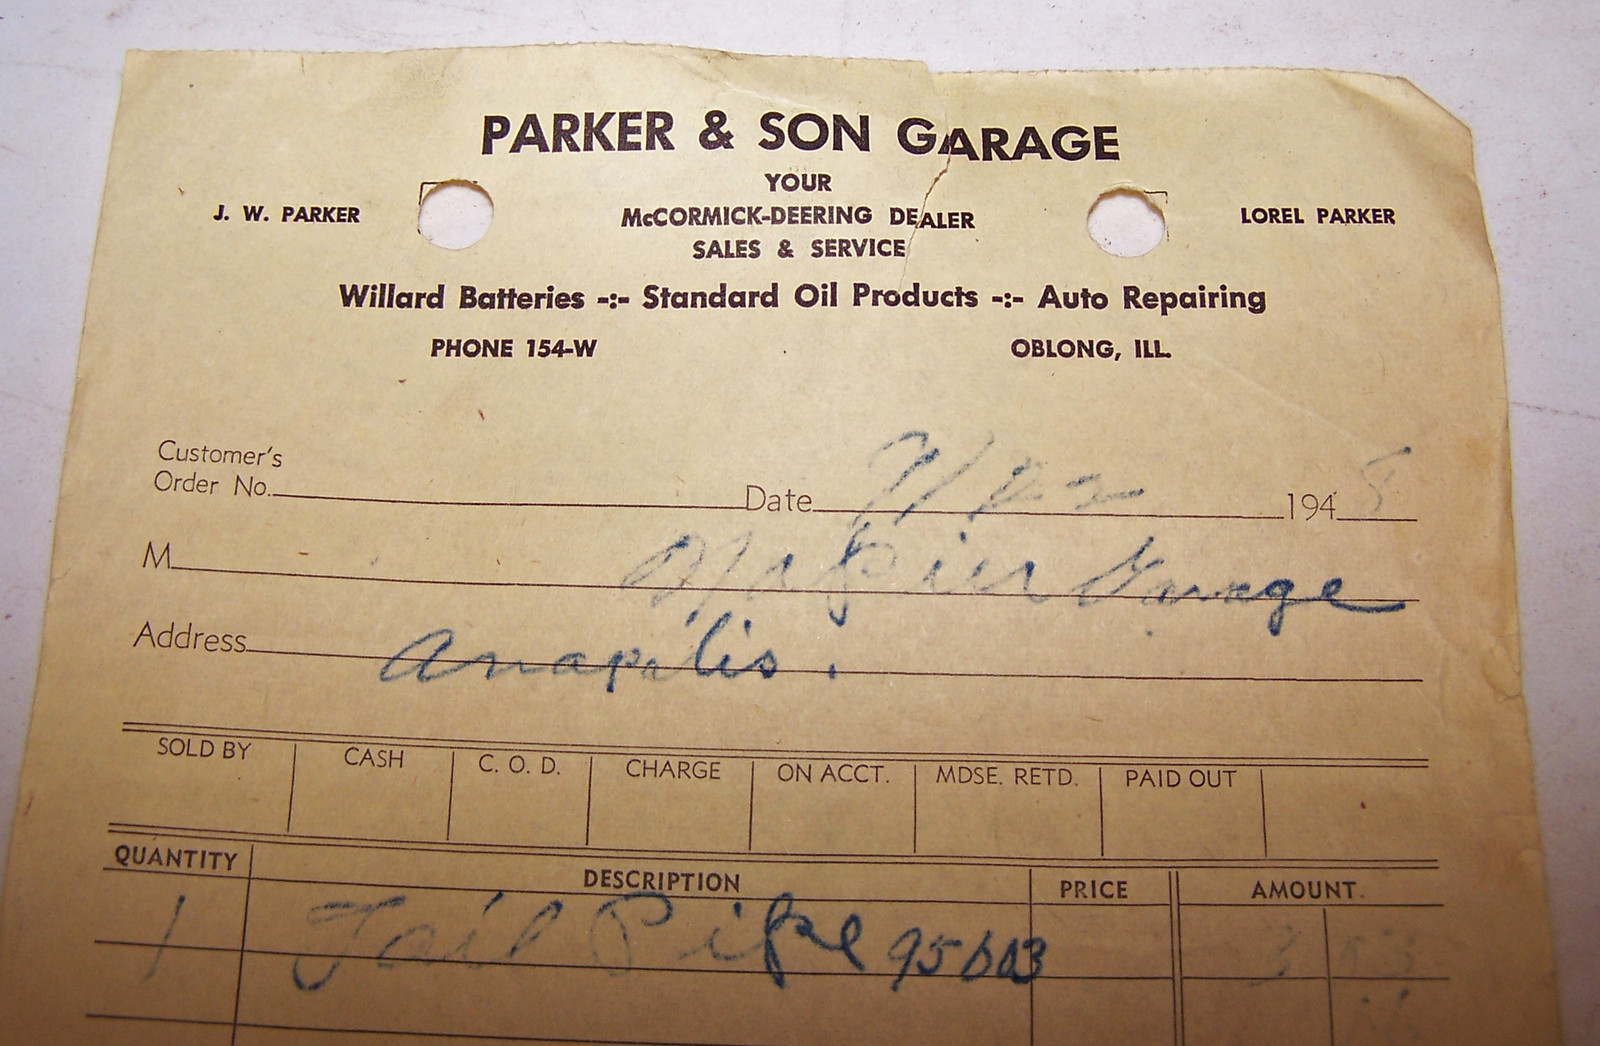 PARKER & SON GARAGE
YOUR
J. W. PARKER McCORMICK-DEERING DEALER LOREL PARKER
SALES & SERVICE
Willard Batteries -:- Standard Oil Products -:- Auto Repairing
PHONE 154-W OBLONG, ILL.
Customer's
Order No. Date 1948
M Napier Garage
Address Anapilis.
SOLD BY CASH C. O. D. CHARGE ON ACCT. MDSE. RETD. PAID OUT
QUANTITY DESCRIPTION PRICE AMOUNT
1 Tail Pipe 3